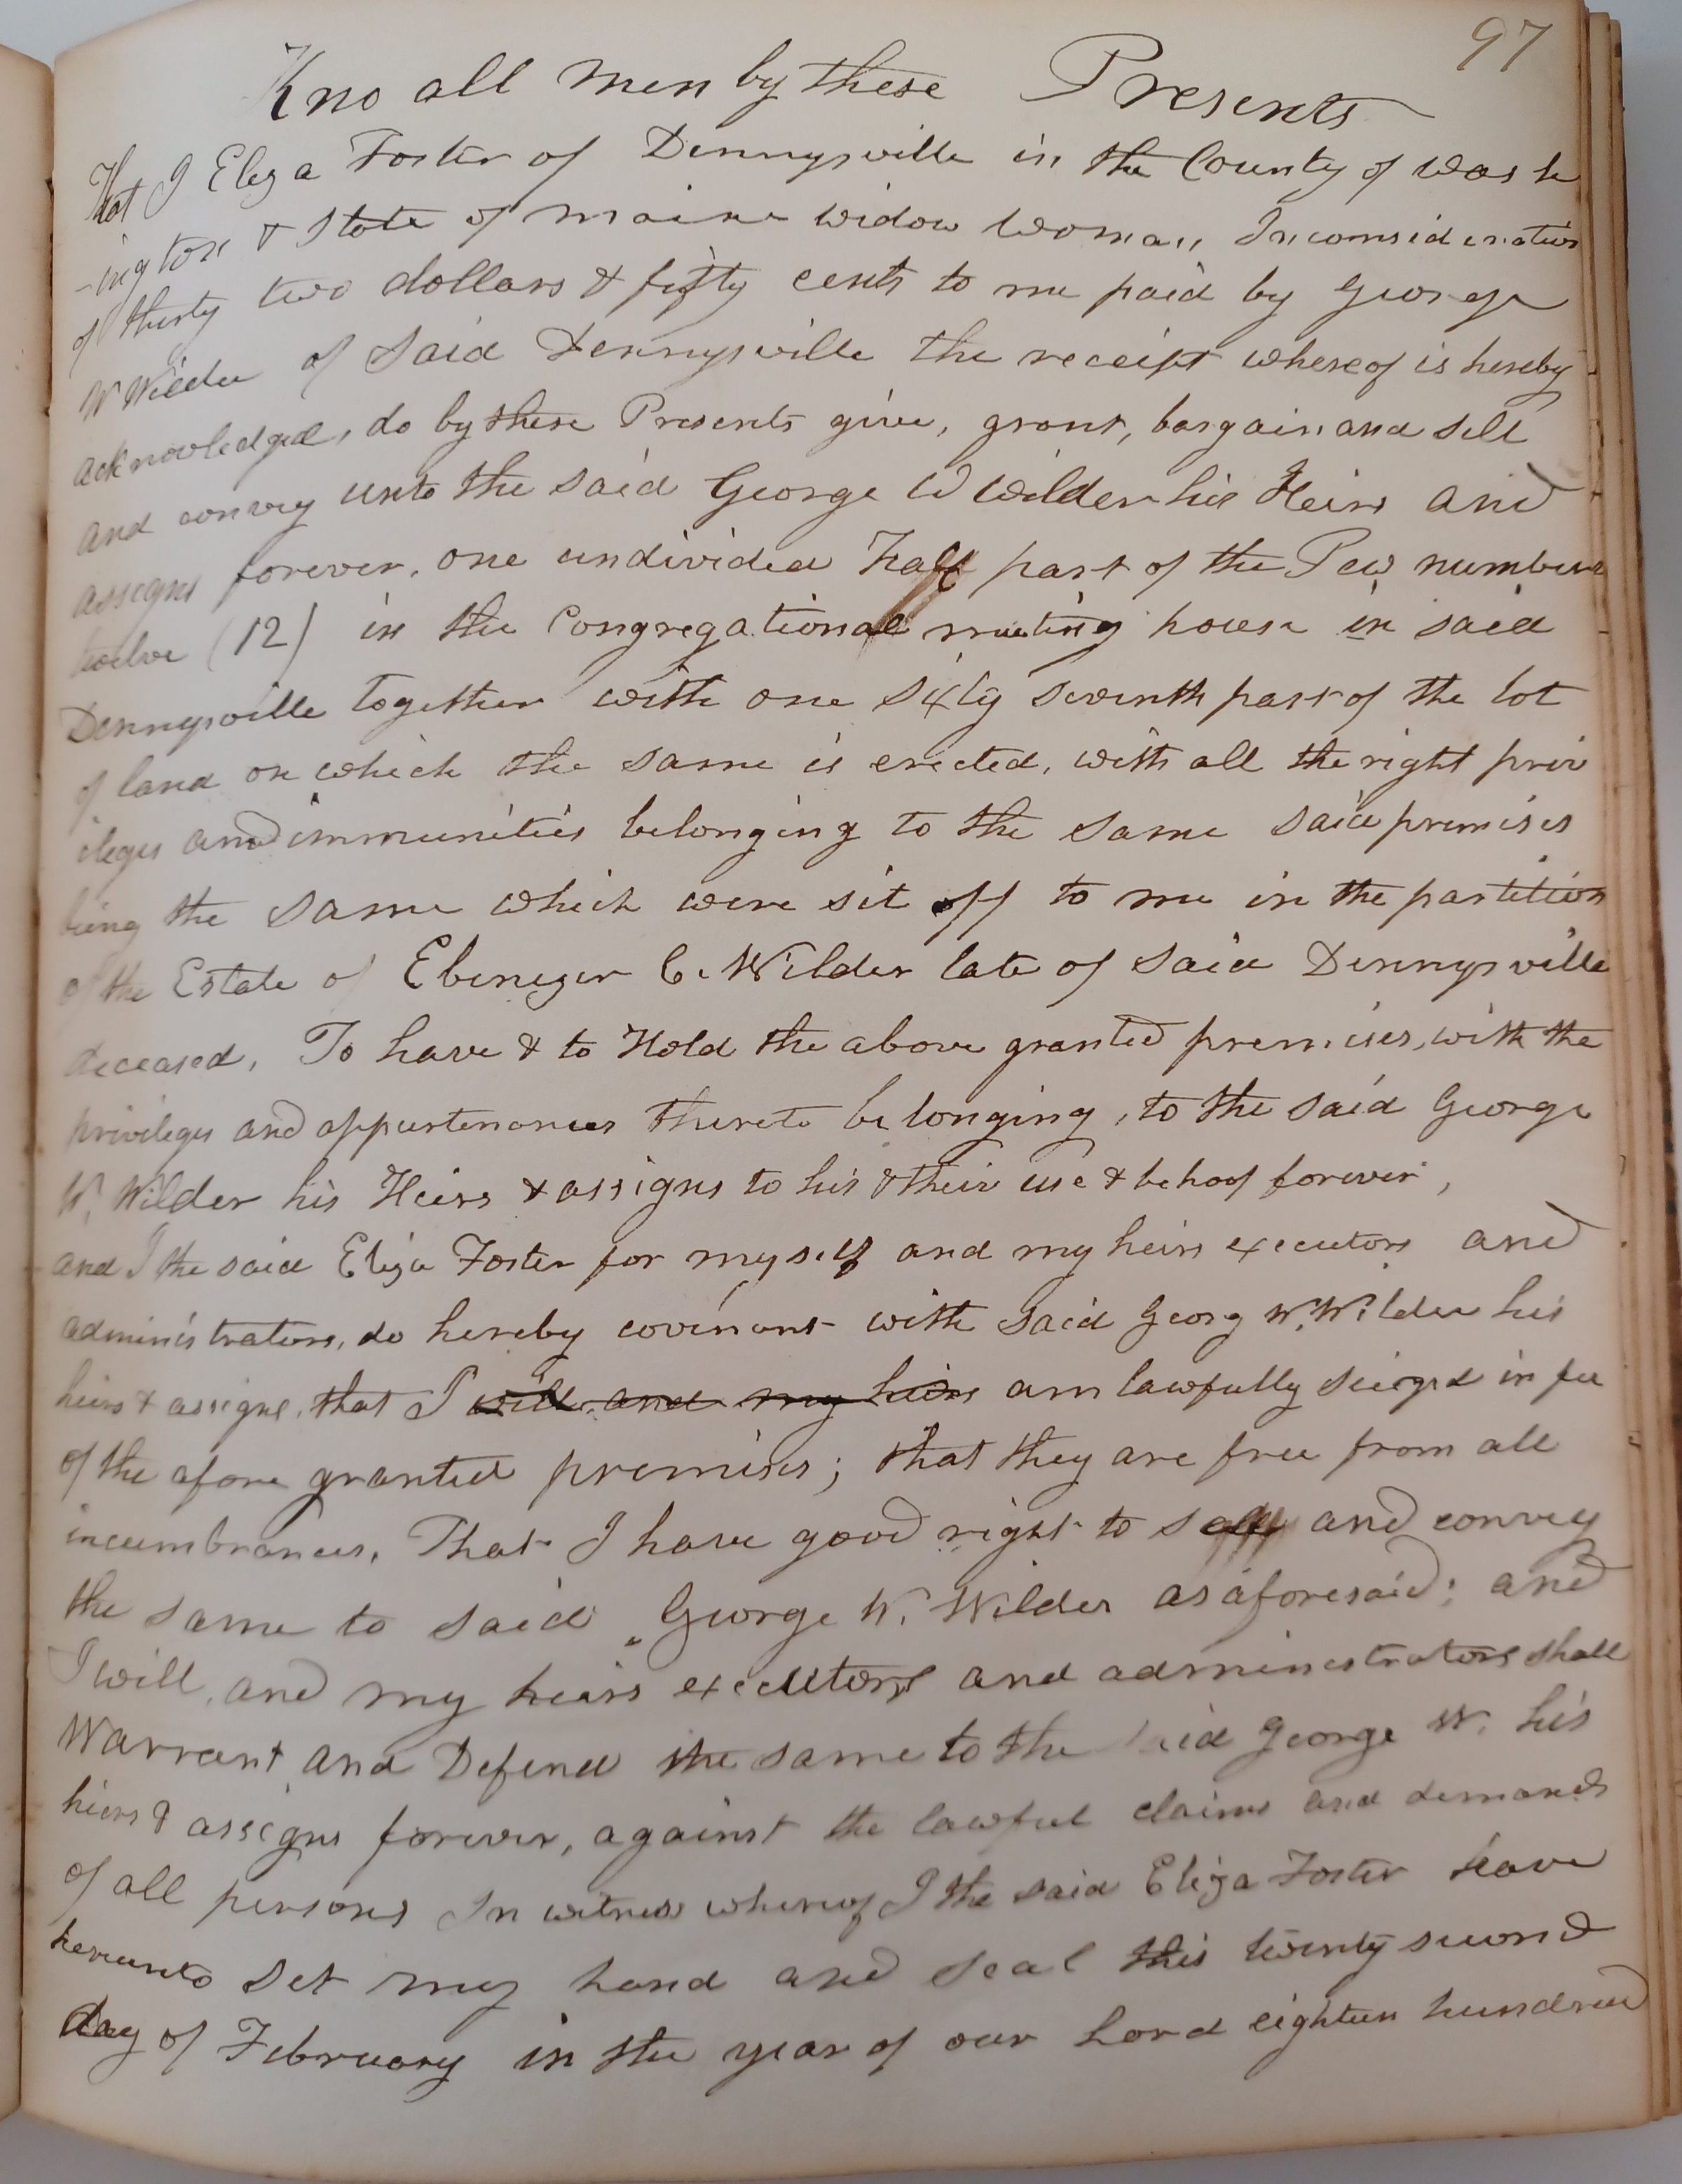 97
Kno all men by these Presents
That I Eliza Foster of Dennysville in the County of Wash
-ington & State of Maine widow woman, In consideration
of thirty two dollars & fifty cents to me paid by George
W Wilder of said Dennysville the receipt whereof is hereby
acknowledged, do by these Presents give, grant, bargain and sell
and convey unto the said George W Wilder his Heirs and
assigns forever, one undivided half part of the Pew number
twelve (12) in the Congregational meeting house in said
Dennysville together with one sixty seventh part of the lot
of land on which the same is erected, with all the right priv
ileges and immunities belonging to the same said premises
being the same which were sit off to me in the partition
of the Estate of Ebenezer C. Wilder late of said Dennysville
deceased. To have & to Hold the above granted premises, with the
privileges and appurtenances thereto belonging, to the said George
W. Wilder his Heirs & assigns to his & their use & behoof forever,
and I the said Eliza Foster for myself and my heirs executors and
administrators, do hereby covenant with said Georg W. Wilder his
heirs & assigns, that I will and my heirs am lawfully seized in fee
of the afore granted premises; that they are free from all
incumbrances, That I have good right to sell and convey
the same to said George W. Wilder as aforesaid; and
I will, and my heirs executors and administrators shall
Warrant and Defend the same to the said George W. his
hiers & assigns forever, against the lawful claims and demands
of all persons In witness whereof I the said Eliza Foster have
hereunto set my hand and seal this twenty second
day of February in the year of our Lord eighteen hundred